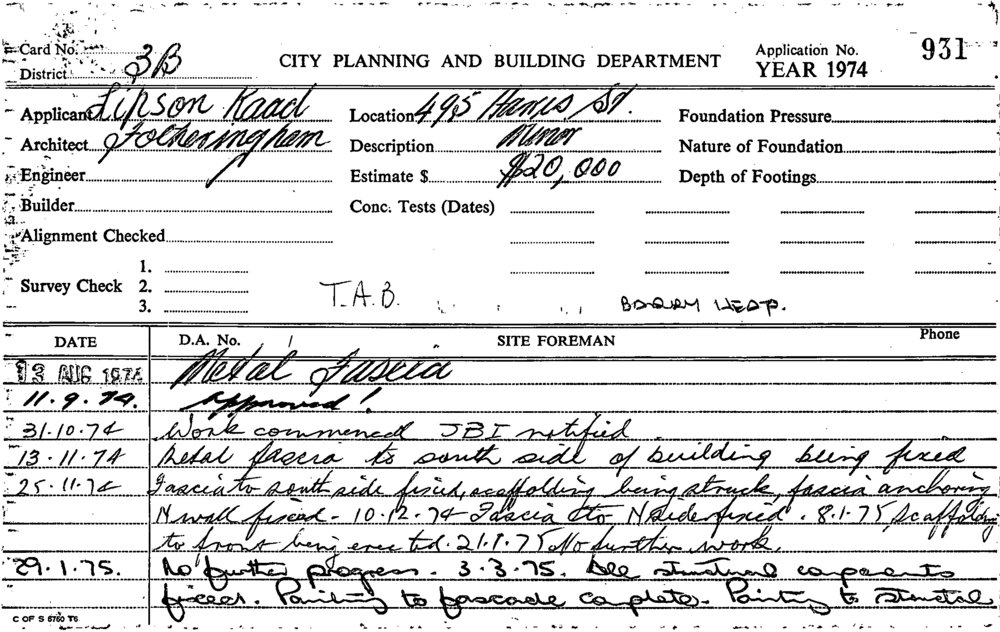 Card No.
District 3B
CITY PLANNING AND BUILDING DEPARTMENT
Application No. 931
YEAR 1974
Applicant Lipson Kaad
Location 495 Harris St.
Foundation Pressure
Architect Fotheringham
Description Minor
Nature of Foundation
Engineer
Estimate $ $20,000
Depth of Footings
Builder
Conc. Tests (Dates)
Alignment Checked
Survey Check
1.
2.
3.
T.A.B.
DATE
D.A. No.
SITE FOREMAN
Phone
13 AUG 1974 Metal Fascia
11.9.74. Approved!
31.10.74 Work commenced JBI notified
13.11.74 Metal fascia to south side of building being fixed
25.11.74 Fascia to south side fixed, scaffolding being struck, fascia anchoring
N wall fixed - 10.12.74 Fascia to N side fixed. 8.1.75 Scaffolding
to front being erected. 21.1.75 No further work.
29.1.75. No further progress. 3.3.75. All structural components
fixed. Painting to fascade complete. Painting to
C OF S 6760 T6